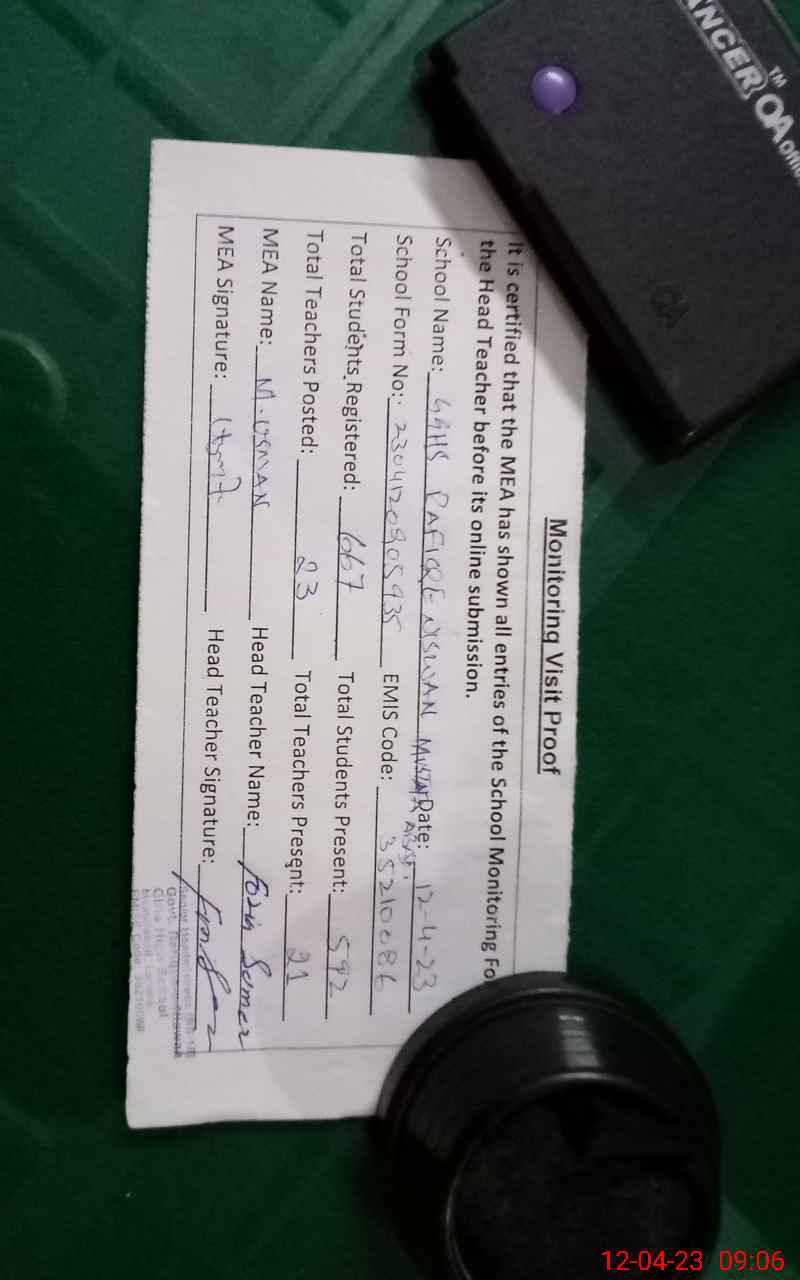 ANCER TM QA Offic
QA
Monitoring Visit Proof
It is certified that the MEA has shown all entries of the School Monitoring Fo
the Head Teacher before its online submission.
School Name: GGHS RAFIQUE NISWAN MUSTAFA ABAD Date: 12-4-23
School Form No: 230412090593 EMIS Code: 35210086
Total Students Registered: 667 Total Students Present: 592
Total Teachers Posted: 23 Total Teachers Present: 21
MEA Name: M. USMAN Head Teacher Name:
MEA Signature: Head Teacher Signature:
Senior Headmistress
Govt.
Girls High School
12-04-23 09:06